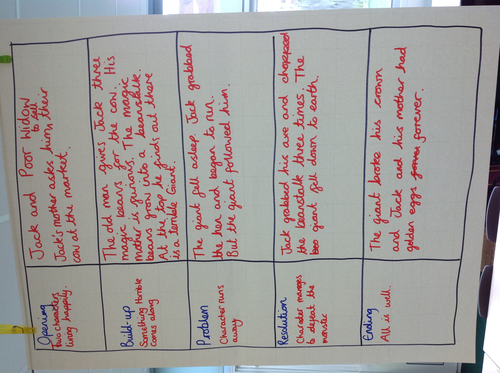 Opening
Two characters
living happily.
Jack and Poor Widow
to sell
Jack's mother asks him, their
cow at the market.
Build-up
Something horrible
comes along
The old man gives Jack three
magic beans for the cow. His
mother is furious. The magic
beans grow into a beanstalk.
At the top he finds out there
is a terrible Giant.
Problem
Character runs
away
The giant fell asleep. Jack grabbed
the hen and began to run.
But the giant followed him.
Resolution
Character manages
to defeat the
monster
Jack grabbed his axe and chopped
the beanstalk three times. The
giant fell down to earth.
Ending
All is well.
The giant broke his crown
and Jack and his mother had
golden eggs forever.